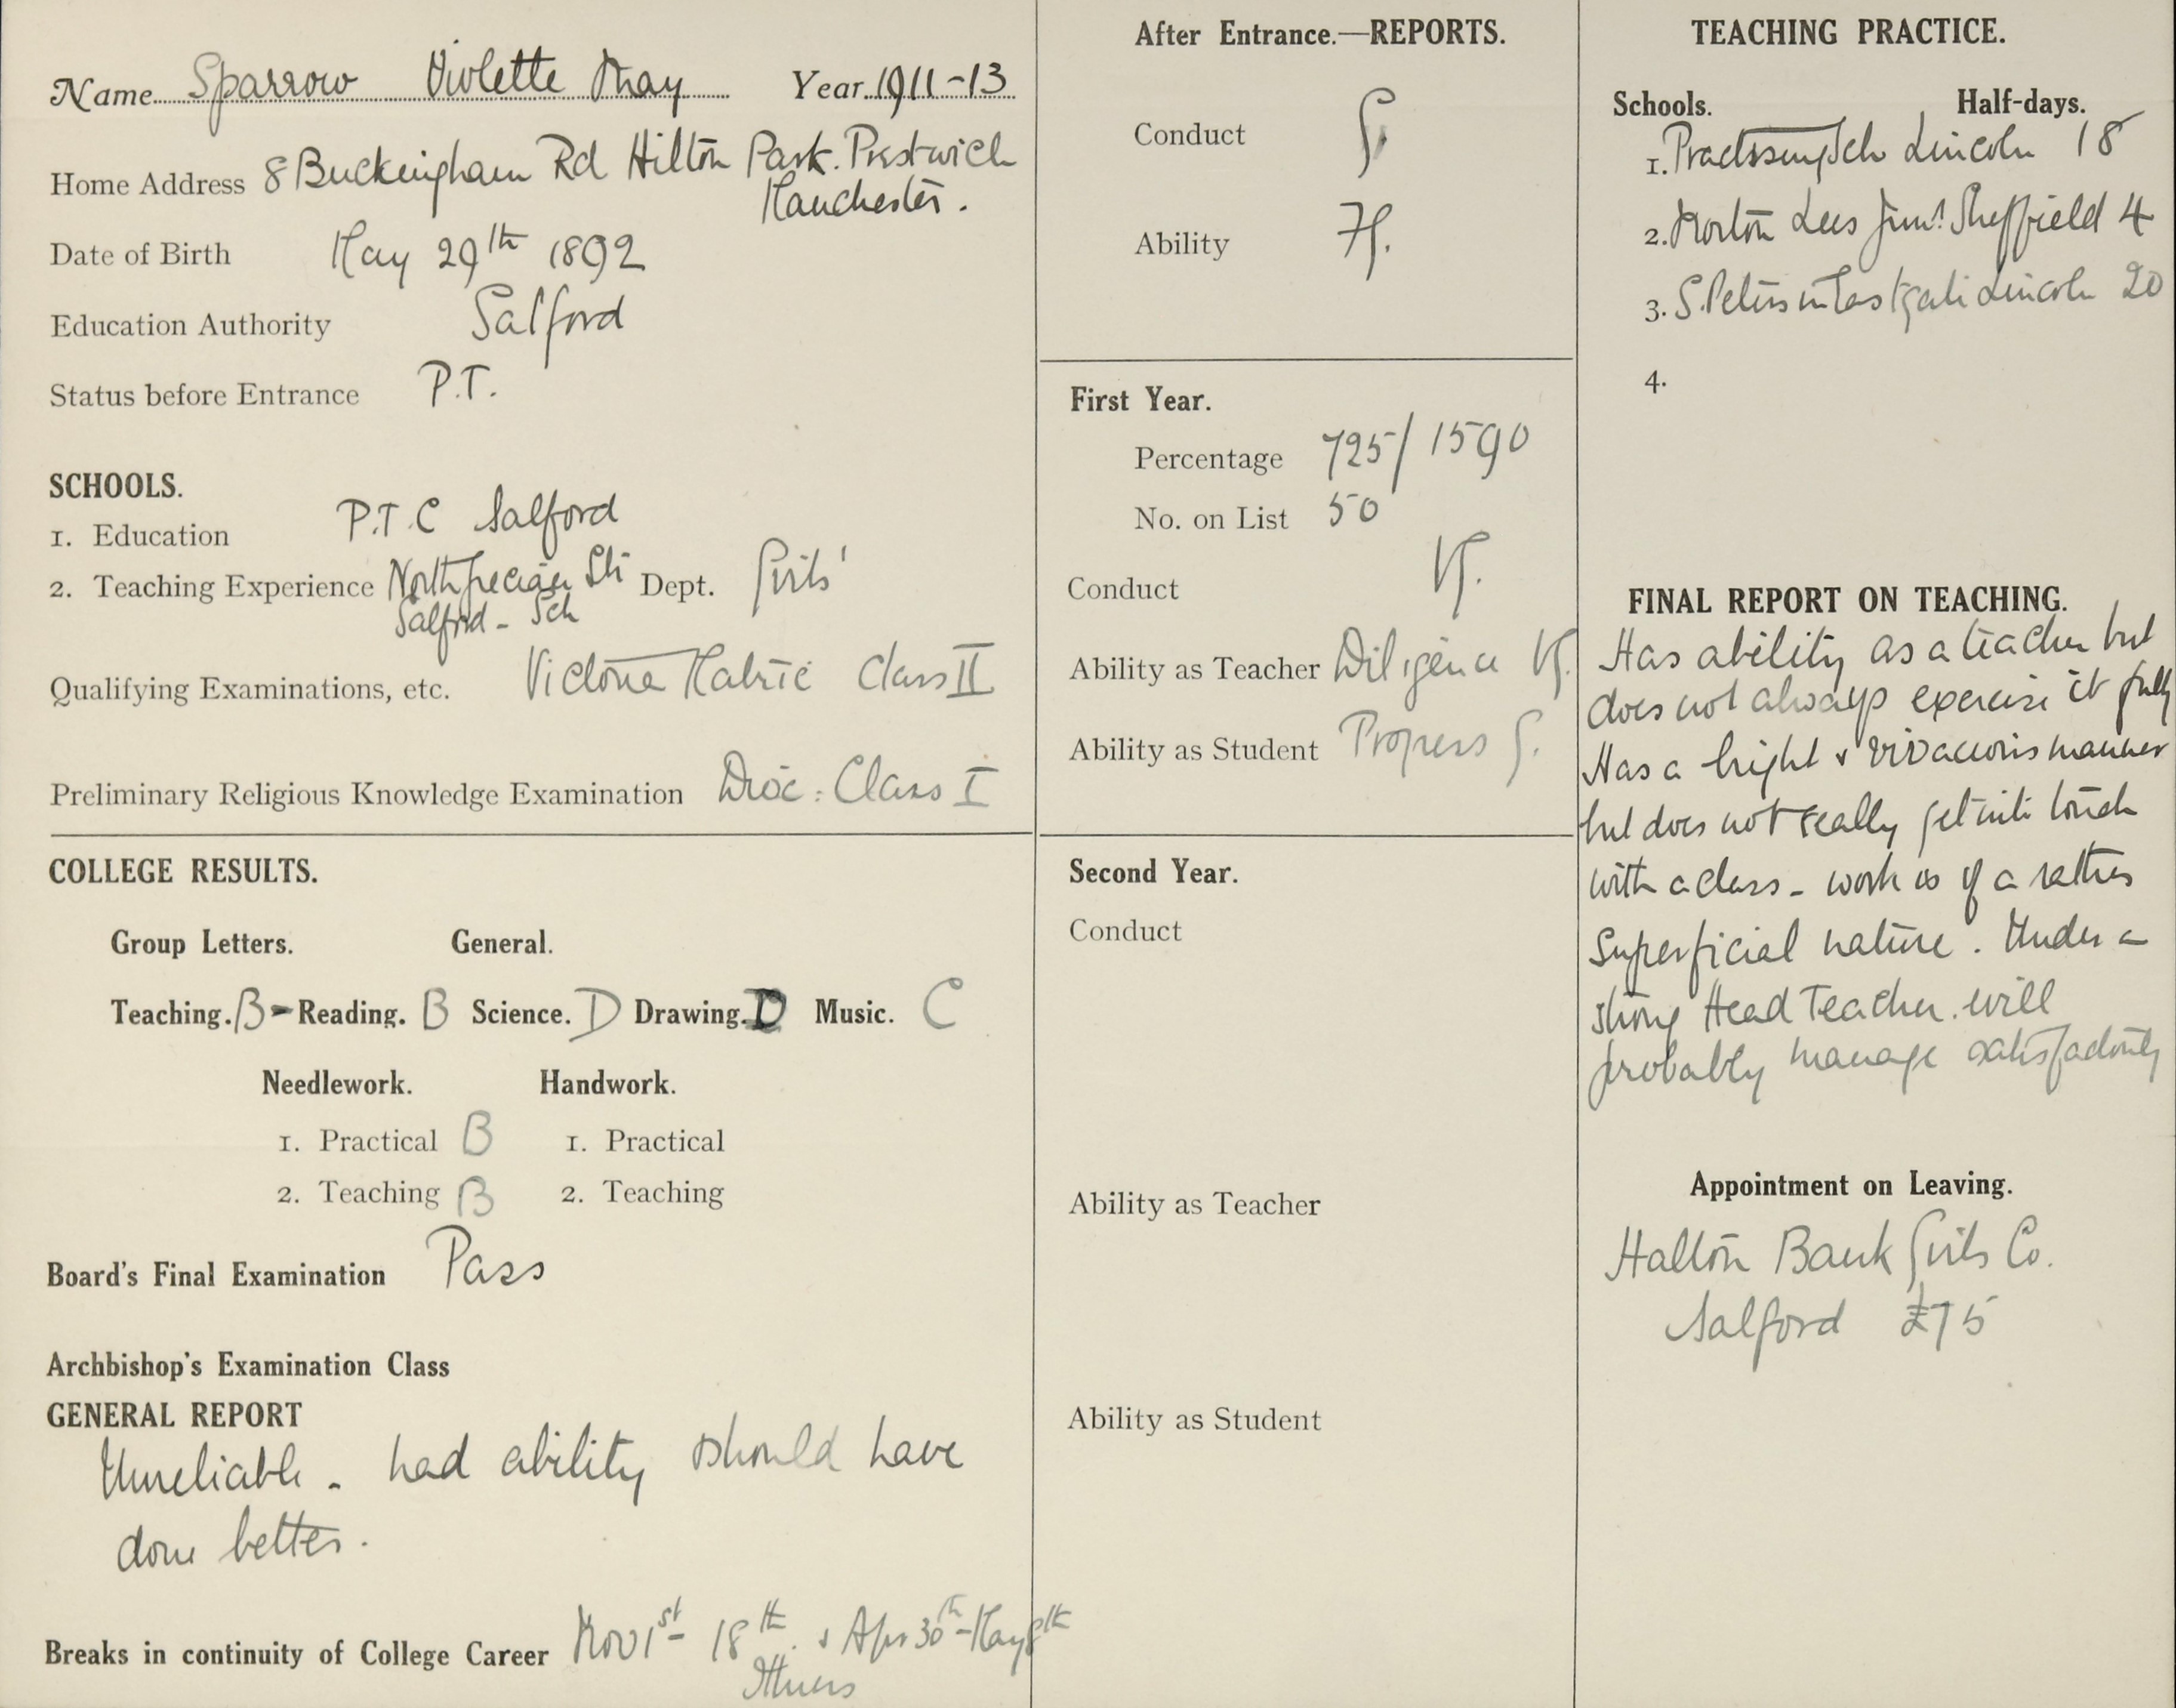 Name Sparrow Violette May Year 1911-13
Home Address 8 Buckingham Rd Hilton Park. Prestwich
Manchester.
Date of Birth May 29th 1892
Education Authority Salford
Status before Entrance P.T.
SCHOOLS.
1. Education P.T.C Salford
2. Teaching Experience North Grecian St Dept. Girls'
Salford - Sch
Qualifying Examinations, etc. Victoria Matric Class II
Preliminary Religious Knowledge Examination Dioc: Class I
COLLEGE RESULTS.
Group Letters. General.
Teaching. B- Reading. B Science. D Drawing. D Music. C
Needlework. Handwork.
1. Practical B 1. Practical
2. Teaching B 2. Teaching
Board's Final Examination Pass
Archbishop's Examination Class
GENERAL REPORT
Unreliable - had ability should have
done better.
Breaks in continuity of College Career Nov 1st - 18th. & Apr 30th - May 8th
Illness
After Entrance.—REPORTS.
Conduct G.
Ability F.
First Year.
Percentage 725/1590
No. on List 50
Conduct VG.
Ability as Teacher Diligence VG.
Ability as Student Progress G.
Second Year.
Conduct
Ability as Teacher
Ability as Student
TEACHING PRACTICE.
Schools. Half-days.
1. Practising Sch Lincoln 18
2. Norton Lees Junr. Sheffield 4
3. S. Peters in Eastgate Lincoln 20
4.
FINAL REPORT ON TEACHING.
Has ability as a teacher but
does not always exercise it fully
Has a bright & vivacious manner
but does not really get into touch
with a class - work is of a rather
Superficial nature. Under a
strong Head Teacher. will
probably manage satisfactorily
Appointment on Leaving.
Halton Bank Girls Co.
Salford £75